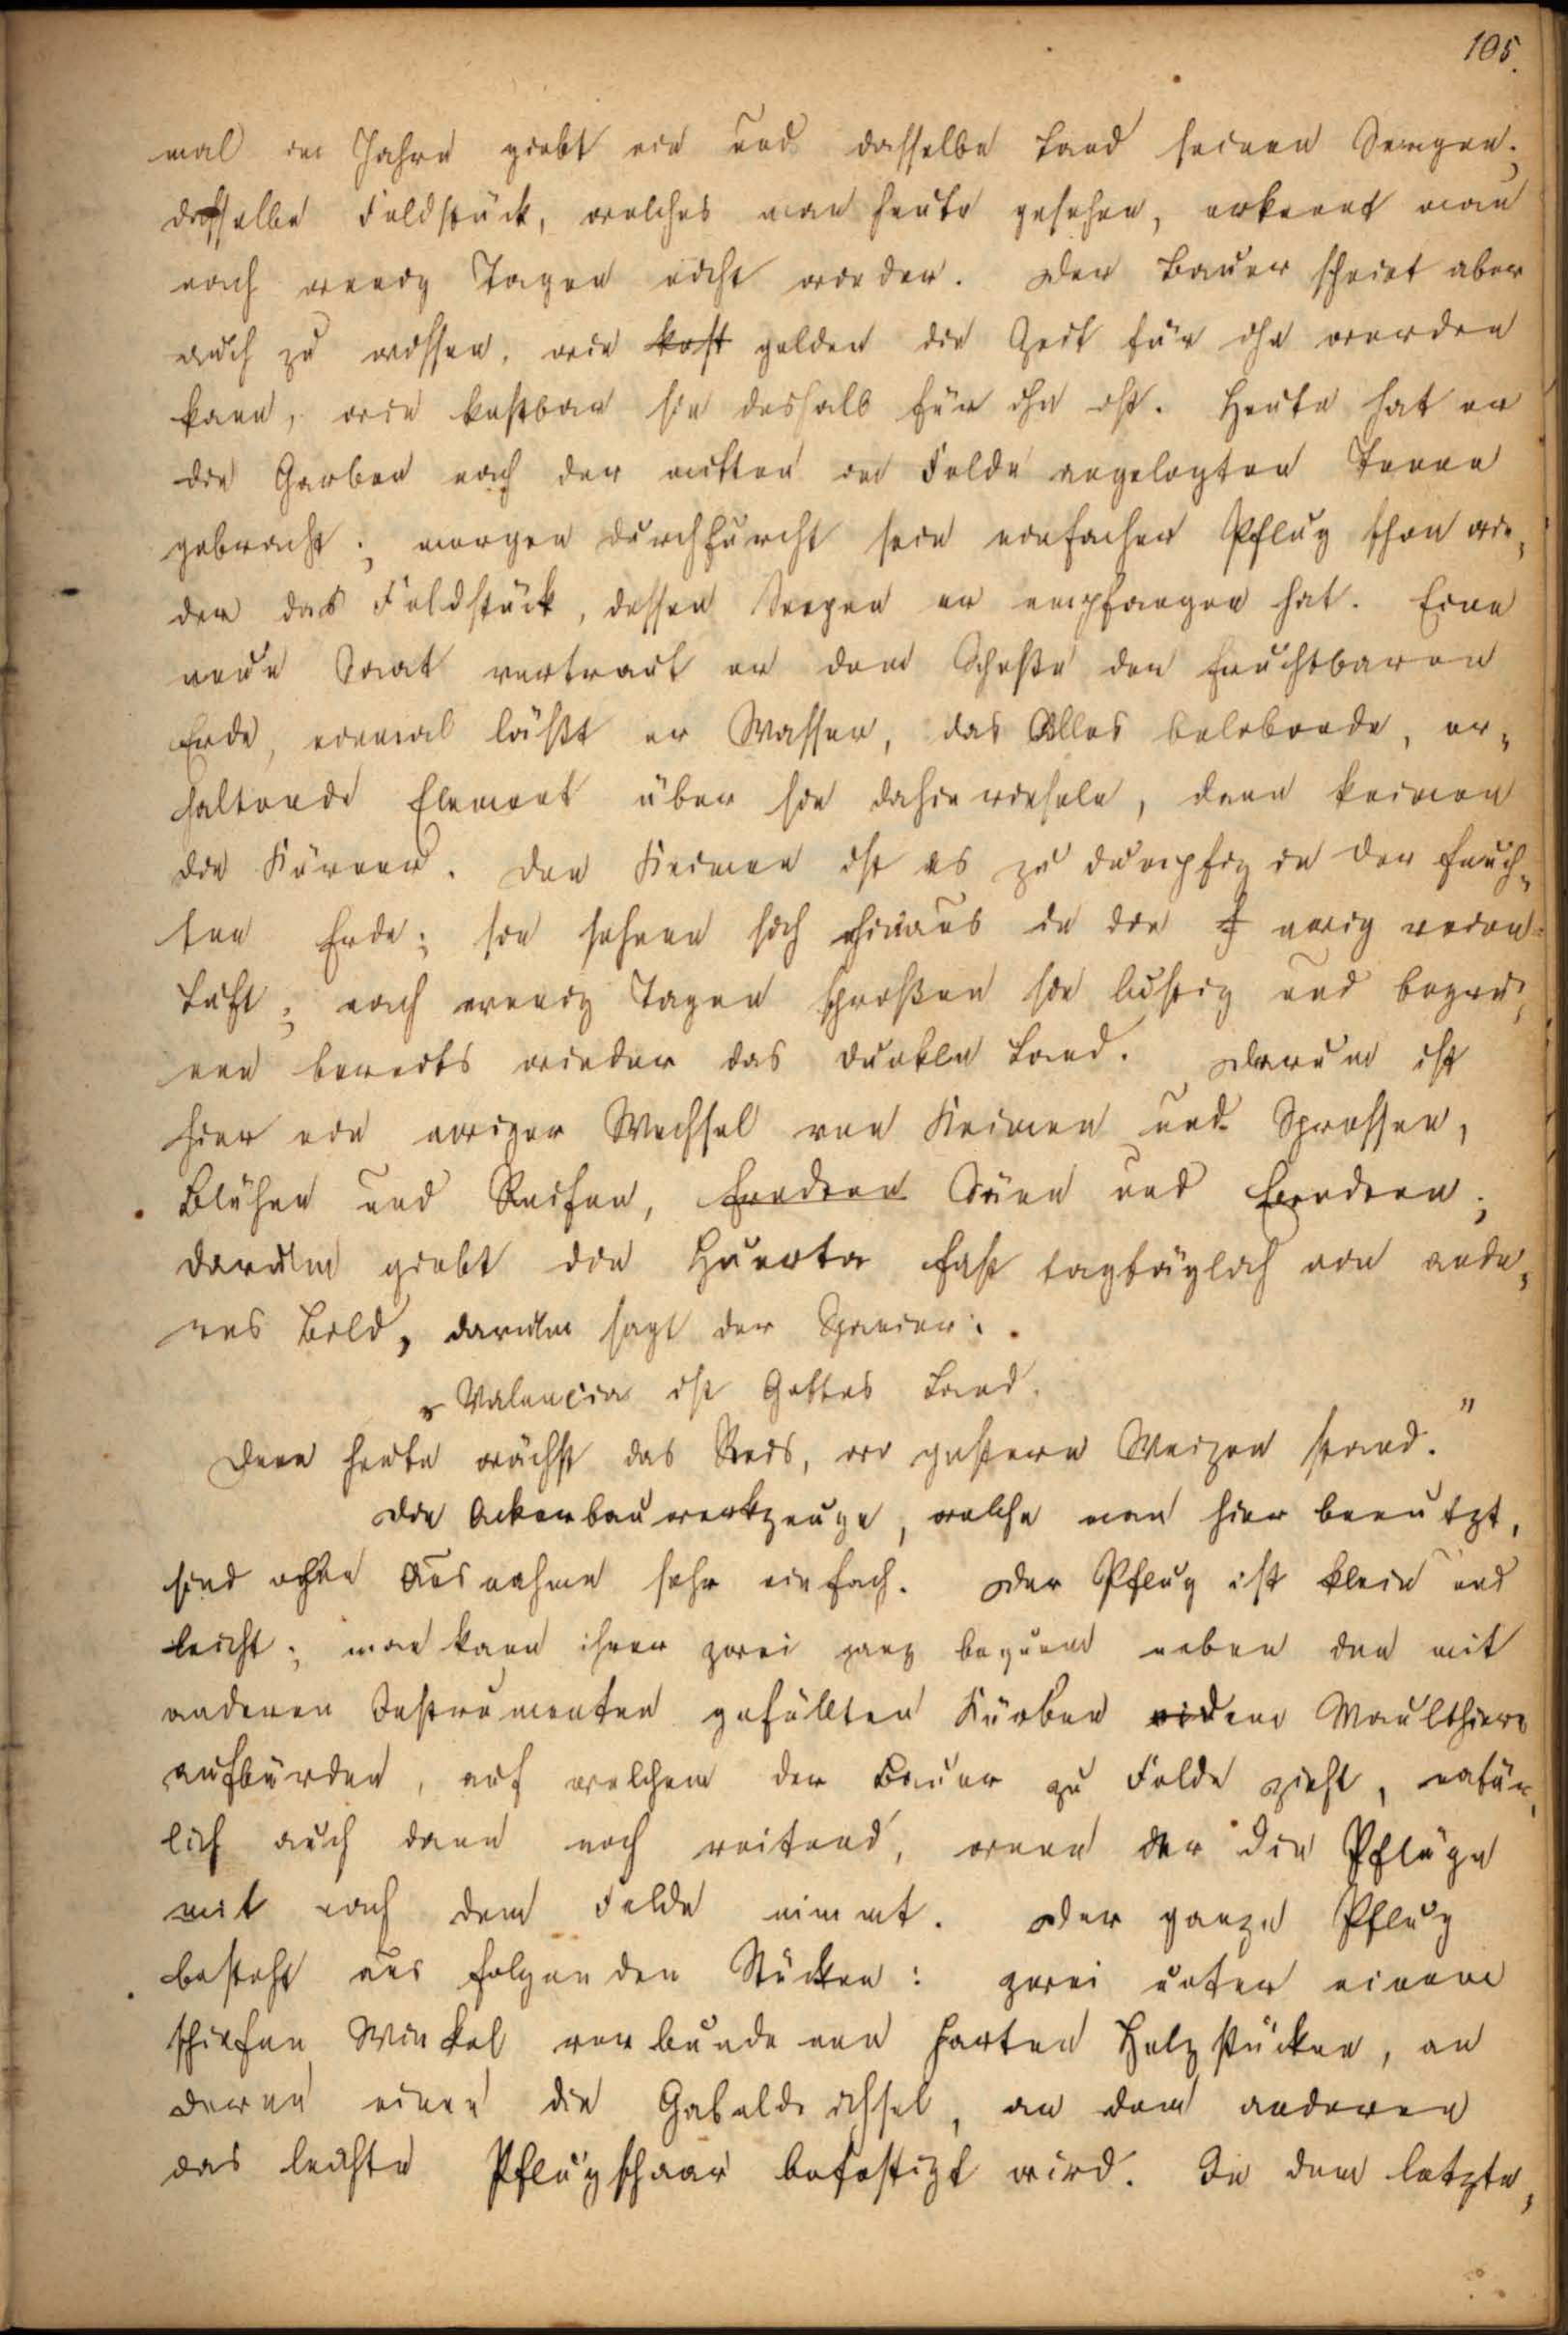 105.
mal im Jahre giebt ein und dasselbe Land seinen Seegen;
dasselbe Feldstück, welches man heute gesehen, erkennt man
nach wenig Tagen nicht wieder. Der Bauer scheint aber
auch zu wissen, wie kost golden die Zeit für ihn werden
kann, wie kostbar sie deshalb für ihn ist. Heute hat er
die Garben nach der mitten im Felde angelegten Tenne
gebracht; morgen durchfurcht sein einfacher Pflug schon wie,
der das Feldstück, dessen Seegen er empfangen hat. Eine
neue Saat vertraut er dem Schoße der fruchtbaren
Erde, einmal läßt er Wasser, das Alles belebende, er,
haltende Element über sie dahinrieseln, dann keimen
die Körner. Den Keimen ist es zu dumpfig in der feuch,
ten Erde; sie sehnen sich hinaus in die ewig reine
Luft; nach wenig Tagen sproßen sie lustig und begrü,
nen bereits wieder das dunkle Land. Darum ist
hier ein ewiger Wechsel von Keimen und Sprossen,
Blühen und Reifen, Erndten Säen und Erndten;
darum giebt die Huerta fast tagtäglich ein ande,
res Bild, darum sagt der Spanier:
„Valençia ist Gottes Land.
Denn heute wächst das Reis, wo gestern Weizen stand."
Die Ackerbauwerkzeuge, welche man hier benutzt,
sind ohne Ausnahme sehr einfach. Der Pflug ist klein und
leicht; man kann ihrer zwei ganz bequem neben den mit
anderen Instrumenten gefüllten Körben einem Maulthiere
aufbürden, auf welchem der Bauer zu Felde zieht, natür,
lich auch dann noch reitend, wenn er die Pflüge
mit nach dem Felde nimmt. Der ganze Pflug
besteht aus folgenden Stücken: zwei unter einem
schiefen Winkel verbundenen harten Holzstücken, an
deren einen die Gabeldeichsel, an dem anderen
das leichte Pflugschaar befestigt wird. In dem letzte,